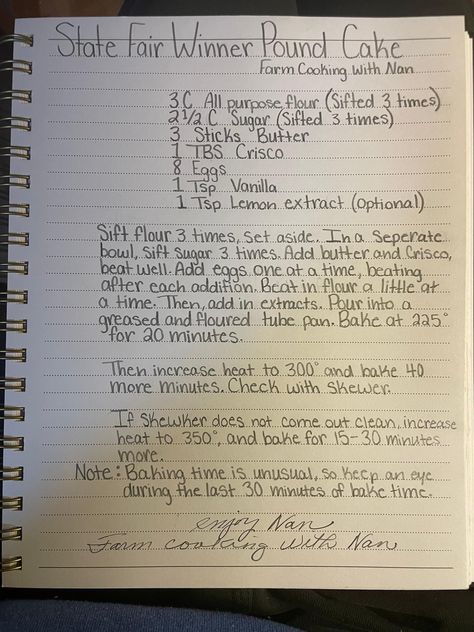 State Fair Winner Pound Cake
Farm Cooking With Nan
3 C All purpose flour (Sifted 3 times)
2 1/2 C Sugar (Sifted 3 times)
3 Sticks Butter
1 TBS Crisco
8 Eggs
1 Tsp Vanilla
1 Tsp Lemon extract (optional)
Sift flour 3 times, set aside. In a Seperate
bowl, sift sugar 3 times. Add butter and Crisco,
beat well. Add eggs one at a time, beating
after each addition. Beat in flour a little at
a time. Then, add in extracts. Pour into a
greased and floured tube pan. Bake at 225°
for 20 minutes.
Then increase heat to 300° and bake 40
more minutes. Check with skewer.
If Skewker does not come out clean, increase
heat to 350°, and bake for 15-30 minutes
more.
Note: Baking time is unusual, so keep an eye
during the last 30 minutes of bake time.
enjoy Nan
Farm cooking with Nan